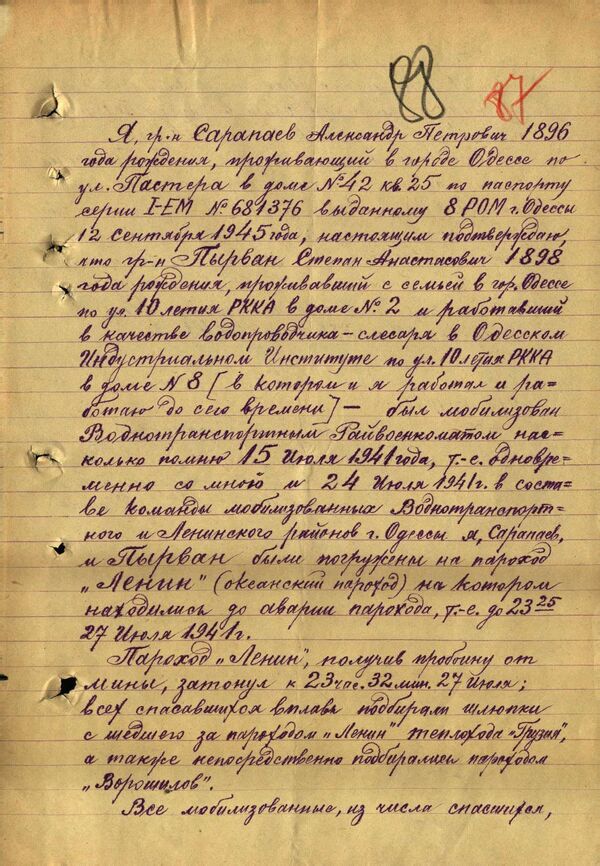 88 87
Я, гр-н Сарапаев Александр Петрович 1896
года рождения, проживающий в городе Одессе по
ул. Пастера в доме №42 кв. 25 по паспорту
серии I-ЕМ № 681376 выданному 8 РОМ г. Одессы
12 сентября 1945 года, настоящим подтверждаю,
что гр-н Пырван Степан Анастасович 1898
года рождения, проживавший с семьей в гор. Одессе
по ул. 10 летия РККА в доме №2 и работавший
в качестве водопроводчика-слесаря в Одесском
Индустриальном Институте по ул. 10 летия РККА
в доме №8 [в котором и я работал и ра=
ботаю до сего времени] — был мобилизован
Воднотранспортным Райвоенкоматом нас=
колько помню 15 Июля 1941 года, т.-е. одновре=
менно со мной и 24 Июля 1941 г. в соста=
ве команды мобилизованных Воднотранспорт=
ного и Ленинского районов г. Одессы я, Сарапаев,
и Пырван были погружены на пароход
„Ленин" (океанский пароход) на котором
находились до аварии парохода, т.-е. до 23 25
27 Июля 1941 г.
Пароход „Ленин", получив пробоину от
мины, затонул к 23 час. 32 мин. 27 Июля;
всех спасавшихся вплавь подбирали шлюпки
с шедшего за пароходом „Ленин" теплохода „Грузия",
а также непосредственно подбирались пароходом
„Ворошилов".
Все мобилизованные, из числа спасшихся,